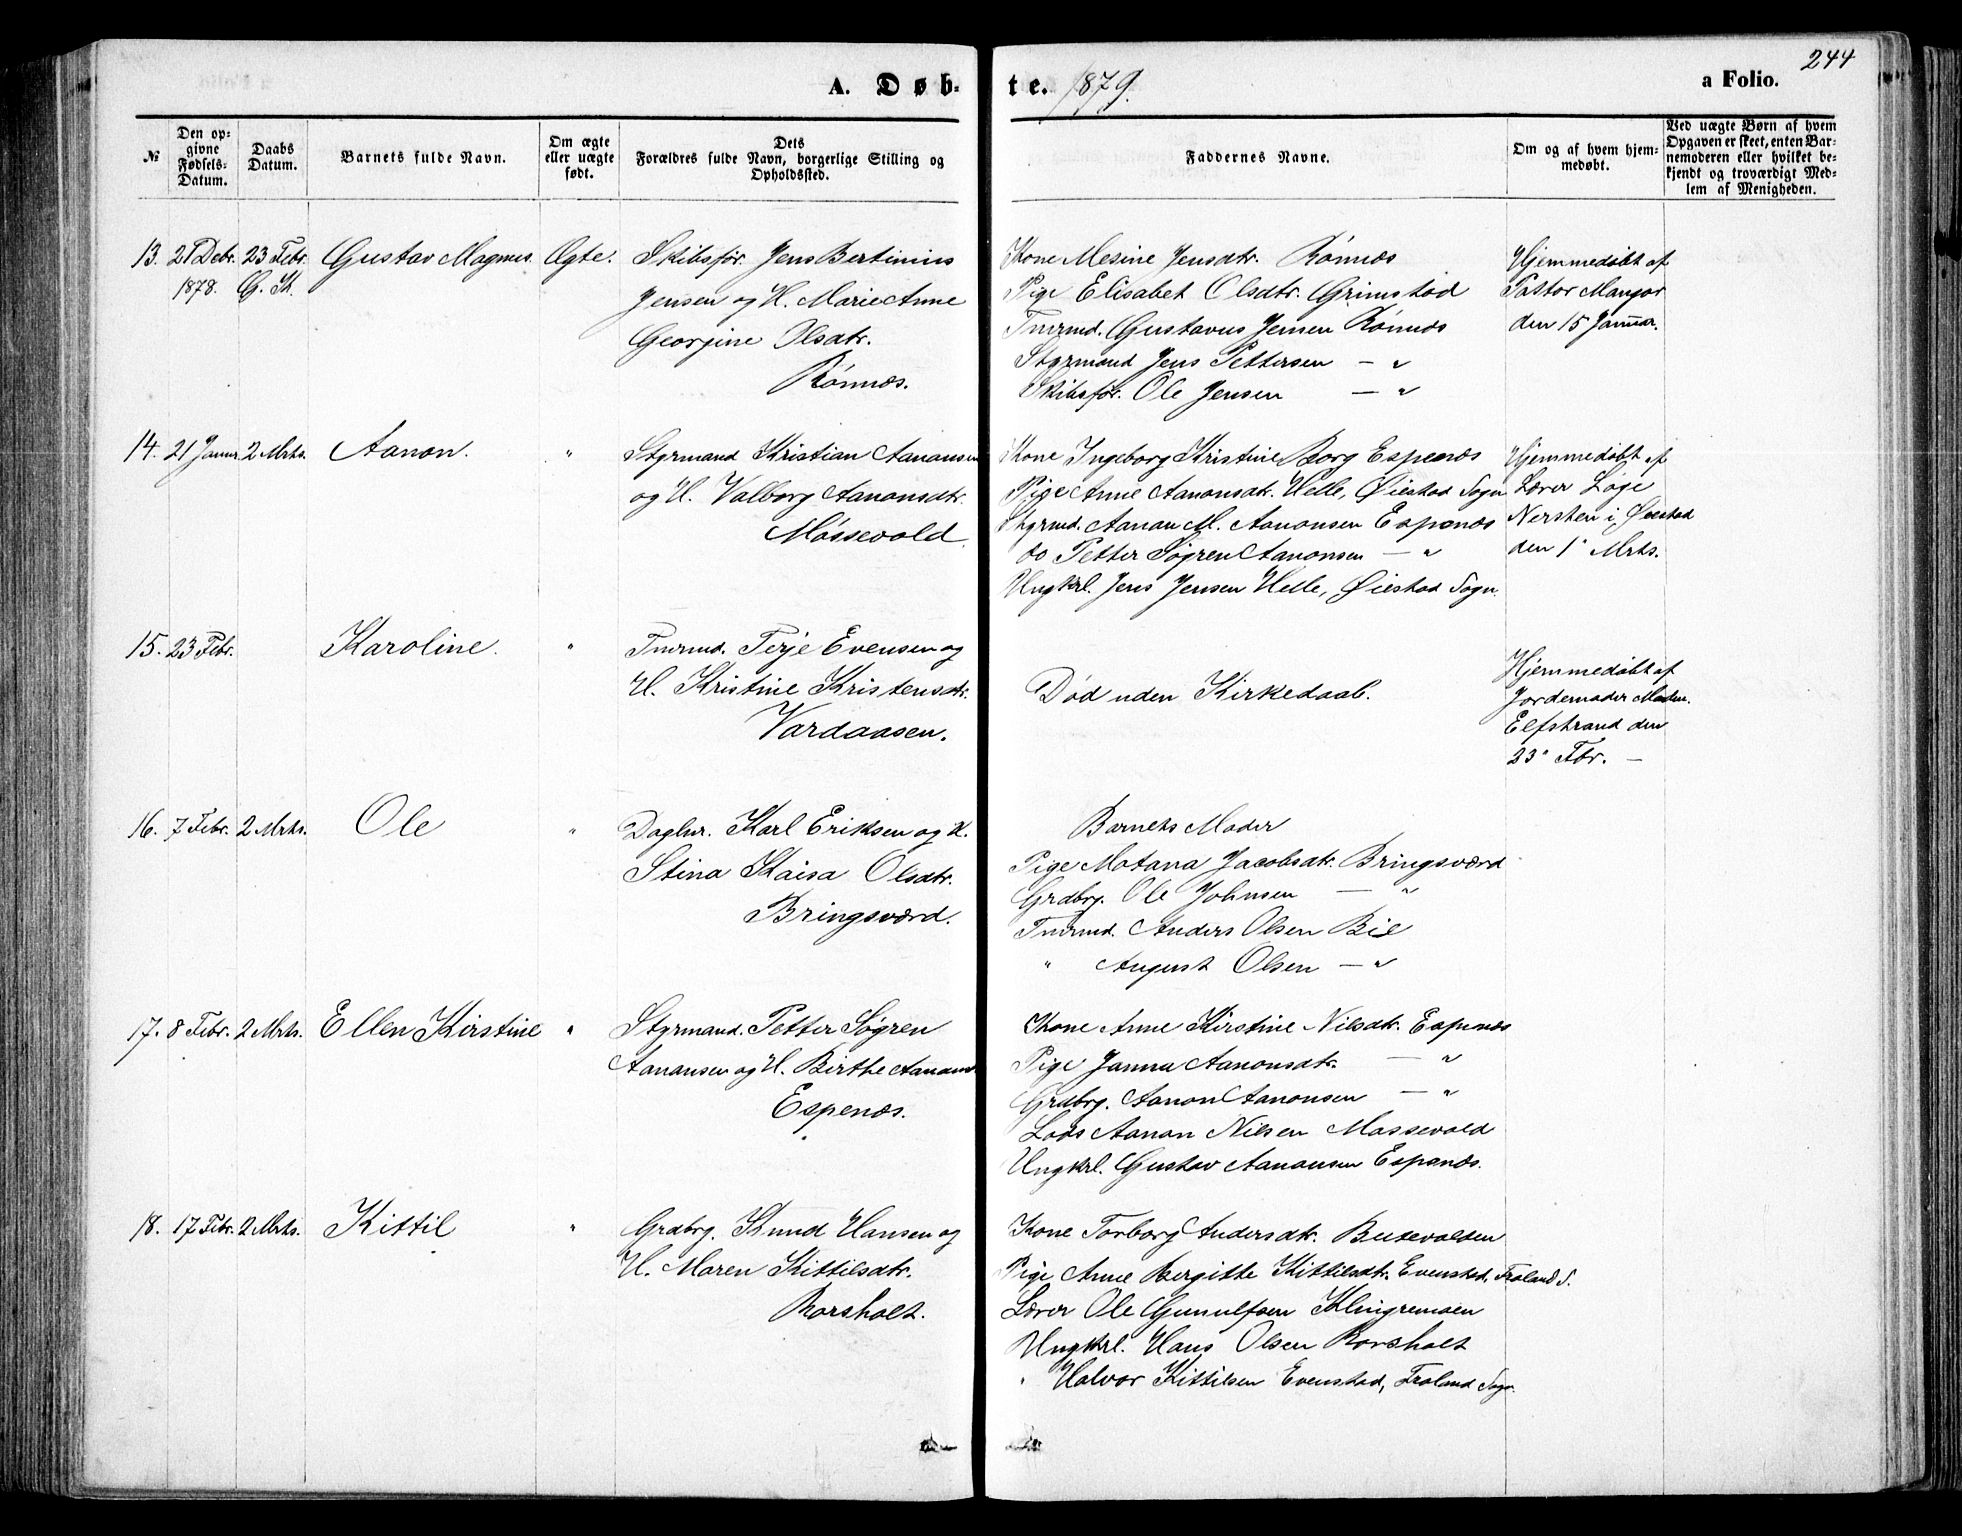 244
A. Døbte. 1879.
a Folio.
№
Den opgivne Fødsels-Datum.
Daabs Datum.
Barnets fulde Navn.
Om ægte eller uægte født.
Dets Forældres fulde Navn, borgerlige Stilling og Opholdssted.
Faddernes Navne.
Om og af hvem hjemmedøbt.
Ved uægte Børn af hvem Opgaven er skeet, enten Barnemoderen eller hvilket bekjendt og troværdigt Medlem af Menigheden.
13. 21 Debr. 1878. 23 Febr. G. K. Gustav Magnus. Ægte.
Skibsfør. Jens Bertinius
Jensen og H. Marie Anne
Georgine Olsdtr.
Rønnes.
Kone Mesine Jensdtr. Rønnes
Pige Elisabet Olsdtr. Grimstad
Tmrmd. Gustavus Jensen Rønnes
Styrmand Jens Pettersen — "
Skibsfør. Ole Jensen — "
Hjemmedøbt af
Pastor Mangor
den 15 Januar.
14. 21 Januar. 2 Mrts. Aanon. "
Styrmand Kristian Aanonsen
og H. Valborg Aanonsdtr.
Møssevold.
Kone Ingeborg Kristine Borg Espenes
Pige Anne Aanonsdtr. Helle, Øiestad Sogn
Styrmd. Aanon M. Aanonsen Espenes
do Petter Søgren Aanonsen — "
Ungkrl. Jens Jensen Helle, Øiestad Sogn.
Hjemmedøbt af
Lærer Løge
Nersten i Øiestad
den 1' Mrts.
15. 23 Febr. Karoline. "
Tmrmd. Terje Evensen og
H. Kristine Kristensdtr.
Vardaasen.
Død uden Kirkedaab.
Hjemmedøbt af
Jordemoder Madm.
Elfstrand den
23' Fbr. —
16. 7 Febr. 2 Mrts. Ole "
Daglnr. Karl Eriksen og H.
Stina Kaisa Olsdtr.
Bringsværd.
Barnets Moder
Pige Matana Jacobsdtr. Bringsværd
Grdbrg. Ole Johnsen — "
Tmrmd. Anders Olsen Bie
" August Olsen — "
17. 8 Febr. 2 Mrts. Ellen Kirstine "
Styrmand. Petter Søgren
Aanonsen og H. Birthe Aanonsd
Espenes.
Kone Anne Kirstine Nilsdtr. Espenes
Pige Janna Aanonsdtr. — "
Grdbrg. Aanon Aanonsen — "
Lods Aanon Nilsen Møssevold
Ungkrl. Gustav Aanonsen Espenes.
18. 17 Febr. 2 Mrts. Kittil "
Grdbrg. Knud Hansen og
H. Maren Kittilsdtr.
Rorsholt.
Kone Torborg Andersdtr. Butevolden
Pige Anne Bergitte Kittilsdtr. Evenstad, Froland S.
Lærer Ole Gunulfsen Klingremoen
Ungkrl. Hans Olsen Rorsholt
" Halvor Kittilsen Evenstad, Froland Sogn.